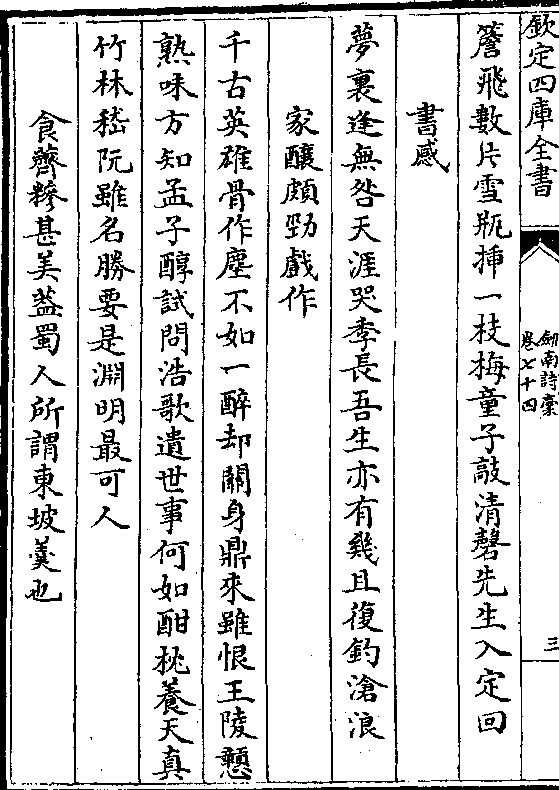 欽定四庫全書
劒南詩稾
卷七十四
三
簷飛數片雪瓶揷一枝梅童子敲清磬先生入定回
書感
夢裏逢無咎天涯哭季長吾生亦有幾且復釣滄浪
家釀頗勁戲作
千古英雄骨作塵不如一醉却關身鼎來雖恨王陵戇
熟味方知孟子醇試問浩歌遺世事何如酣枕養天真
竹林嵇阮雖名勝要是淵明最可人
食薺糝甚美葢蜀人所謂東坡羹也